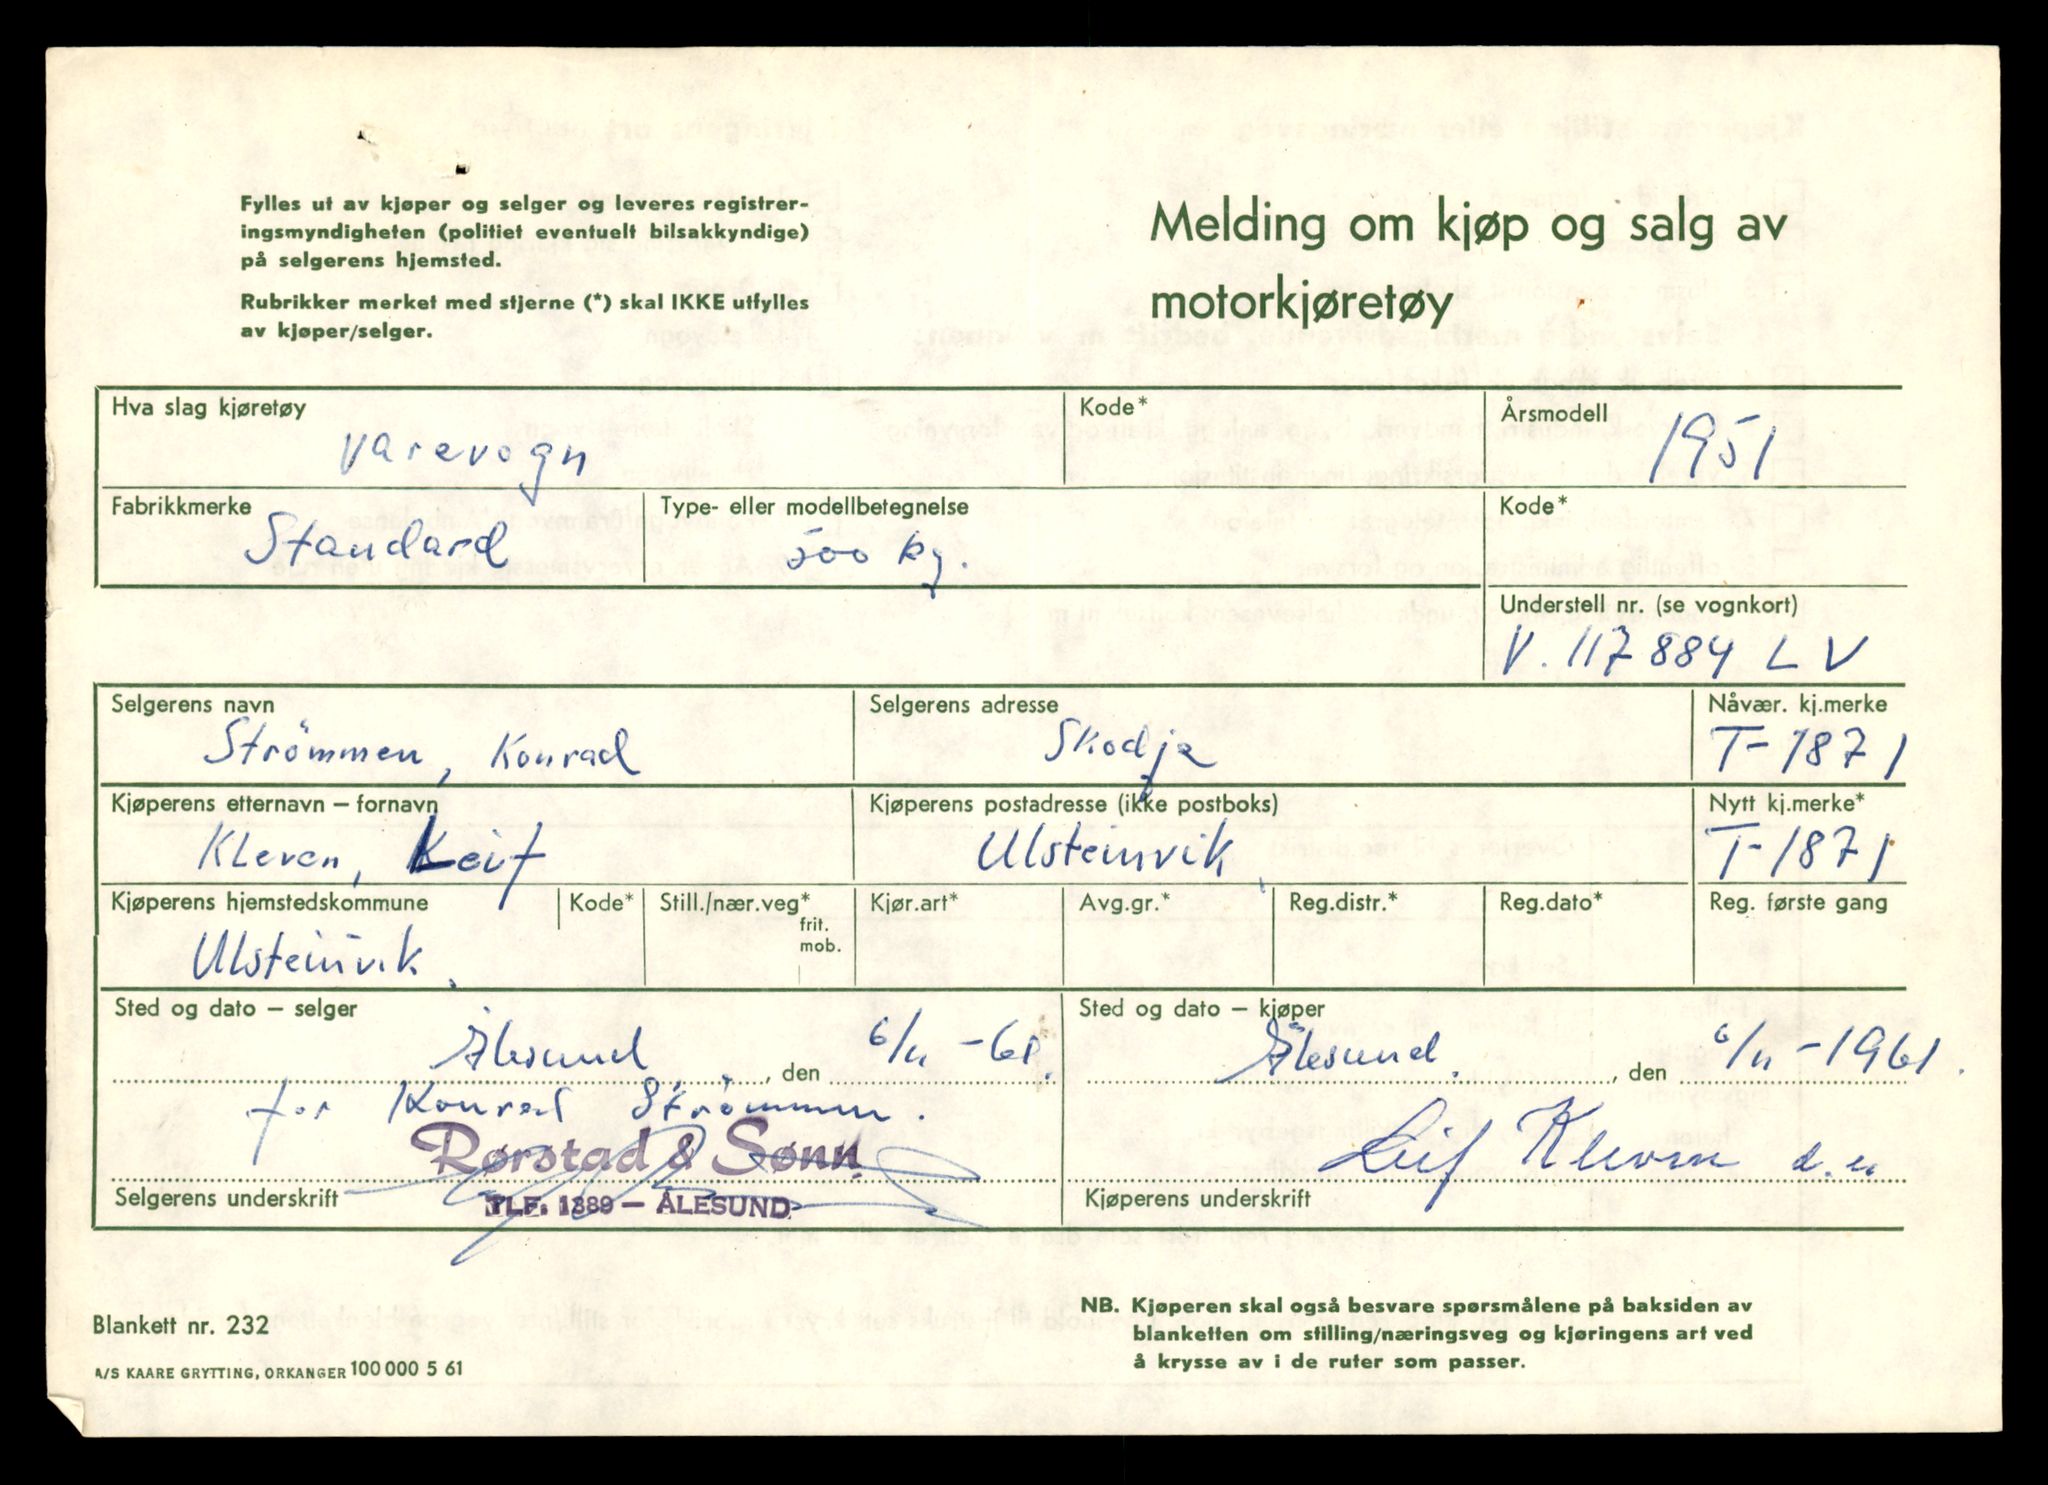 Fylles ut av kjøper og selger og leveres registrer-
ingsmyndigheten (politiet eventuelt bilsakkyndige)
på selgerens hjemsted.
Rubrikker merket med stjerne (*) skal IKKE utfylles
av kjøper/selger.
Melding om kjøp og salg av
motorkjøretøy
Hva slag kjøretøy
Varevogn
Kode*
Årsmodell
1951
Fabrikkmerke
Standard
Type- eller modellbetegnelse
500 kg.
Kode*
Understell nr. (se vognkort)
V. 117884 LV
Selgerens navn
Strömmen, Konrad
Selgerens adresse
Skodje
Nåvær. kj.merke
T-1871
Kjøperens etternavn – fornavn
Kleven, Leif
Kjøperens postadresse (ikke postboks)
Ulsteinvik
Nytt kj.merke*
T-1871
Kjøperens hjemstedskommune
Ulsteinvik.
Kode*
Still./nær.veg*
frit.
mob.
Kjør.art*
Avg.gr.*
Reg.distr.*
Reg.dato*
Reg. første gang
Sted og dato – selger
Ålesund, den 6/11 -61.
for Konrad Strömmen.
Rørstad & Sønn
TLF. 1389 – ÅLESUND
Selgerens underskrift
Sted og dato – kjøper
Ålesund., den 6/11 -1961.
Leif Kleven
Kjøperens underskrift
Blankett nr. 232
A/S KAARE GRYTTING, ORKANGER 100 000 5 61
NB. Kjøperen skal også besvare spørsmålene på baksiden av
blanketten om stilling/næringsveg og kjøringens art ved
å krysse av i de ruter som passer.